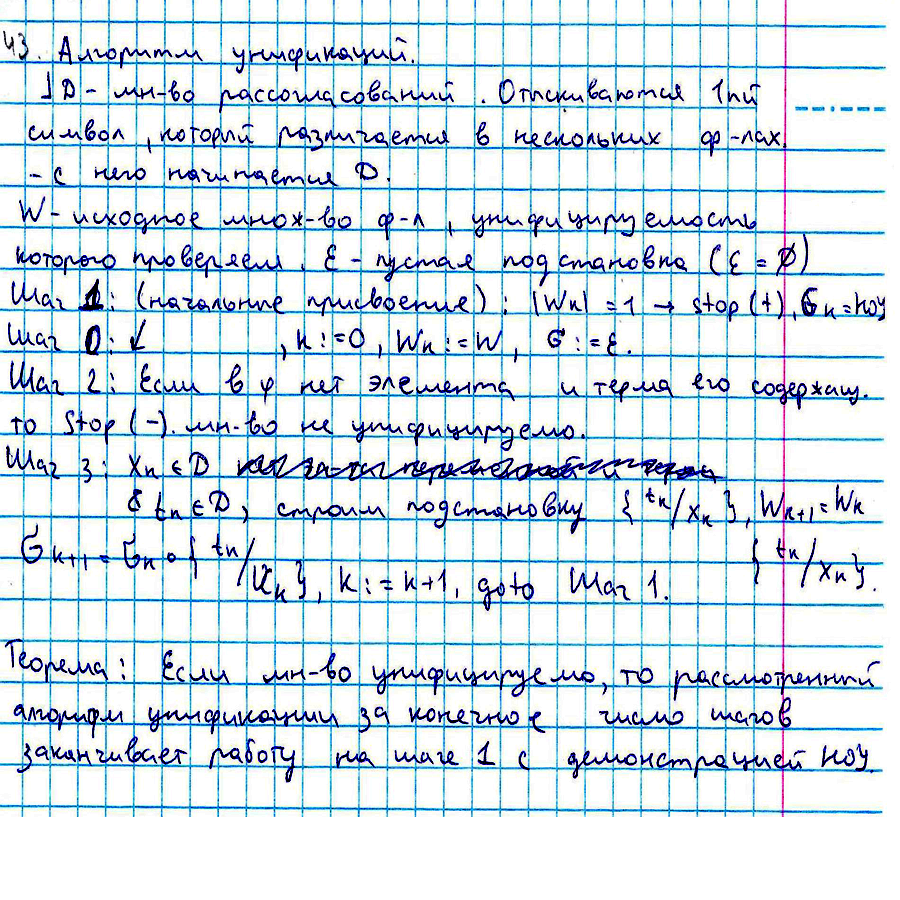 43. Алгоритм унификаций.
⅃ D - мн-во рассогласований. Отыскиваются 1пй
символ, который различается в нескольких ф-лах.
- с него начинается D.
W - исходное множ-во ф-л, унифицируемость
которого проверяем. Ɛ - пустая подстановка (Ɛ = Ø)
Шаг 1: (начальные присвоение): |Wₖ| = 1 → stop (+), Gₖ = НОУ
Шаг 0: ↙ , k := 0, Wₖ := W, G := Ɛ.
Шаг 2: Если в φ нет элемента и терма его содержащ.
то Stop (-). мн-во не унифицируемо.
Шаг 3: Xₖ ∈ D
& tₖ ∈ D, строим подстановку { tₖ/Xₖ }, Wₖ₊₁ = Wₖ
{ tₖ/Xₖ }.
Gₖ₊₁ = Gₖ ∘ { tₖ/Xₖ }, k := k+1, goto Шаг 1.
Теорема: Если мн-во унифицируемо, то рассмотренный
алгорифм унификации за конечное число шагов
заканчивает работу на шаге 1 с демонстрацией НОУ.